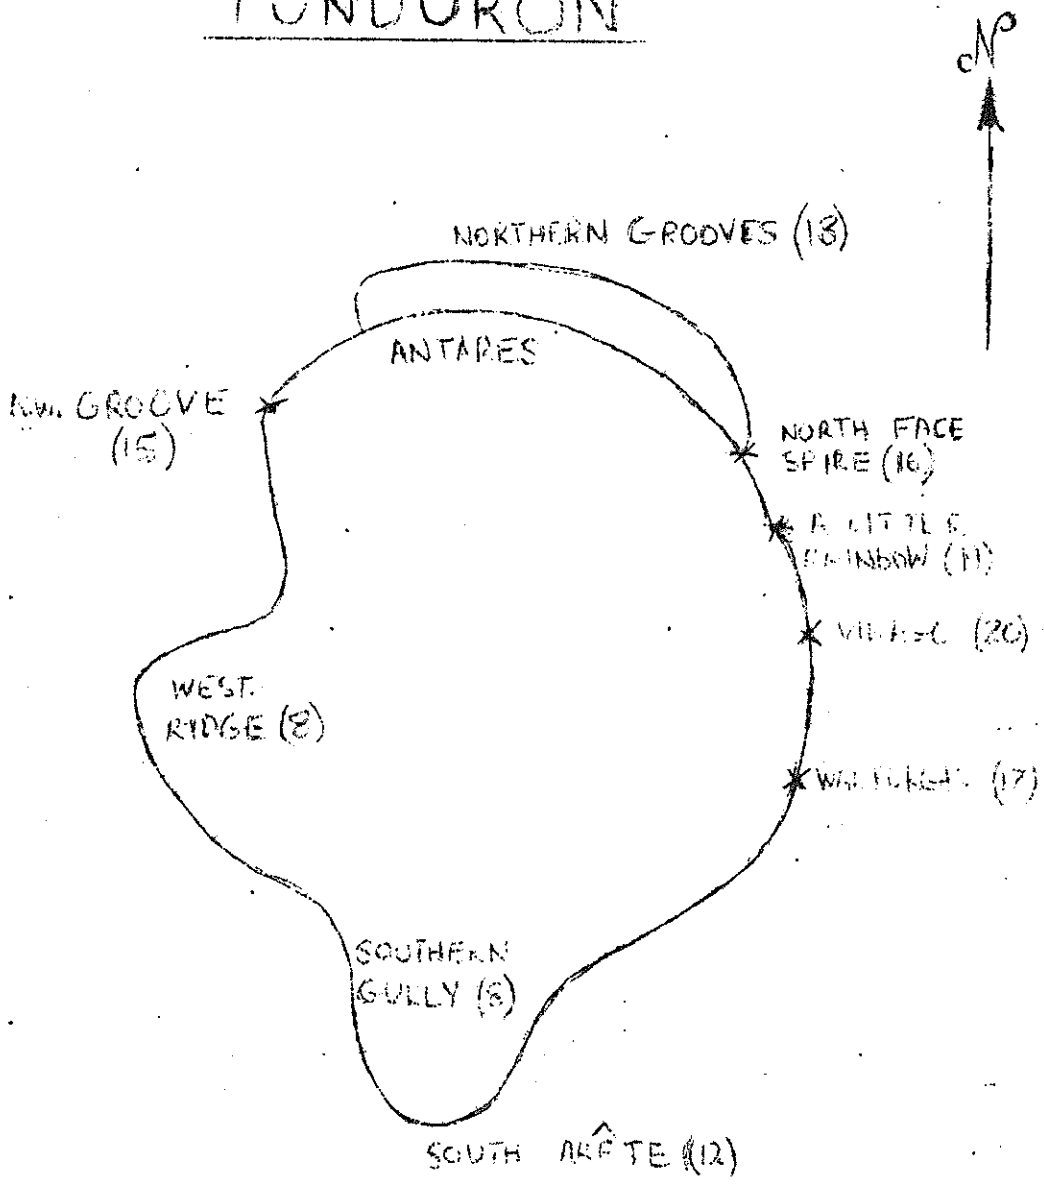 TUNDURON
N
NORTHERN GROOVES (13)
ANTARES
N.W. GROOVE
(15)
NORTH FACE
SPIRE (16)
A LITTLE
RAINBOW (11)
(20)
WEST.
RIDGE (8)
(17)
SOUTHERN
GULLY (8)
SOUTH ARÊTE (12)